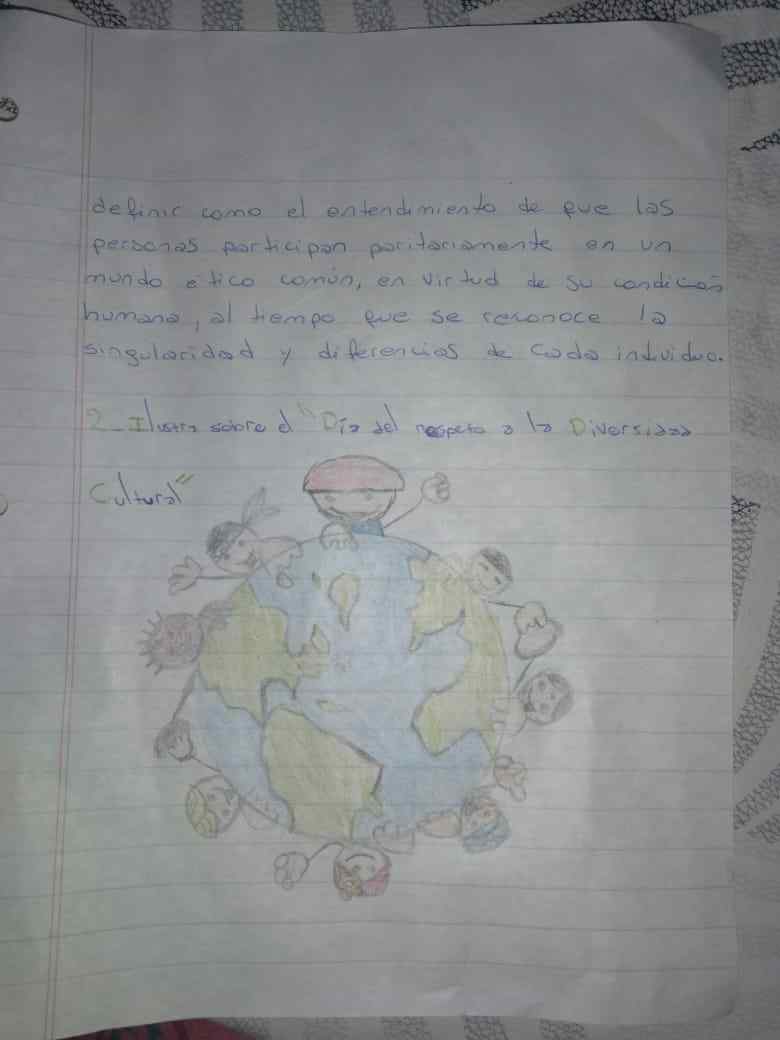 definir como el entendimiento de que las
personas participan paritariamente en un
mundo ético común, en virtud de su condición
humana, al tiempo que se reconoce la
singularidad y diferencias de cada individuo.
2_Ilustra sobre el "Día del respeto a la Diversidad
Cultural"